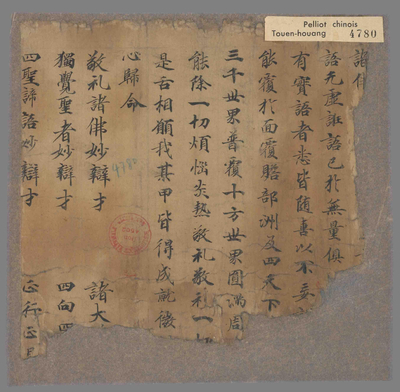 Pelliot chinois
Touen-houang 4780
諸
語无虛誑語已於無量俱
有實語者悉皆随喜以不妄
能覆於面覆贍部洲及四天下
三千世界普覆十方世界圓滿周
能除一切煩惱炎熱敬礼敬礼一切
是舌相願我某甲皆得成就微
心歸命
敬礼諸佛妙辯才 諸大
4780
獨覺聖者妙辯才 四向四
四聖諦語妙辯才 正行正見